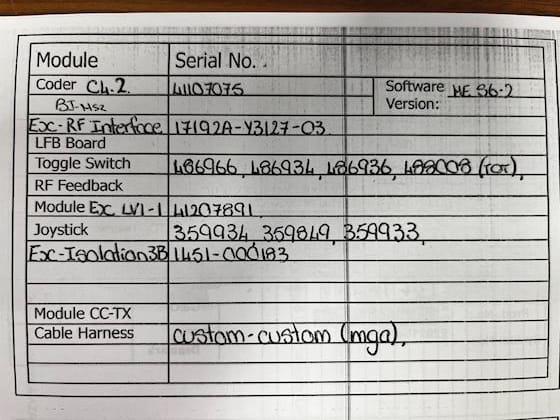 Module Serial No.
Coder C4.2 41107075 Software ME S6-2
BJ-Ms2 Version:
Exc-RF Interface 17192A-Y3127-03
LFB Board
Toggle Switch 486966, 486934, 486936, 488008 (ror),
RF Feedback
Module Ex LV1-1 41207891
Joystick 359934, 359849, 359933,
Ex-Isolation3B 1451-000183
Module CC-TX
Cable Harness custom-custom (mga),